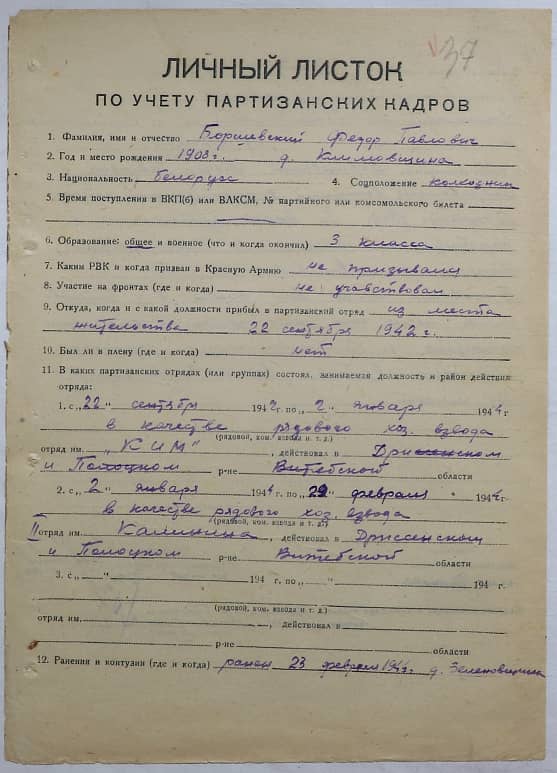 37
ЛИЧНЫЙ ЛИСТОК
ПО УЧЕТУ ПАРТИЗАНСКИХ КАДРОВ
1. Фамилия, имя и отчество Борщевский Федор Павлович
2. Год и место рождения 1903 г. д. Климовщина
3. Национальность белорус 4. Соцположение колхозник
5. Время поступления в ВКП(б) или ВЛКСМ, № партийного или комсомольского билета
6. Образование: общее и военное (что и когда окончил) 3 класса
7. Каким РВК и когда призван в Красную Армию не призывался
8. Участие на фронтах (где и когда) не учавствовал
9. Откуда, когда и с какой должности прибыл в партизанский отряд из места
жительства 22 сентября 1942 г.
10. Был ли в плену (где и когда) нет
11. В каких партизанских отрядах (или группах) состоял, занимаемая должность и район действия
отряда:
1. с „22" сентября 194 г. по „2" января 1944 г
в качестве рядового хоз. взвода
(рядовой, ком. взвода и т. д.)
отряд им. „КИМ", действовал в Дриссенском
и Полоцком р-не Витебской области
2. с „2" января 1944 г. по „29" февраля 1944 г.
в качестве рядового хоз. взвода
(рядовой, ком. взвода и т. д.)
отряд им. Калинина, действовал в Дриссенском
и Полоцком р-не Витебской области
3. с „ " 194 г. по „ " 194 г.
(рядовой, ком. взвода и т. д.)
отряд им. , действовал в
р-не области
12. Ранения и контузии (где и когда) ранен 23 февраля 1944 г. д. Зеленовщина